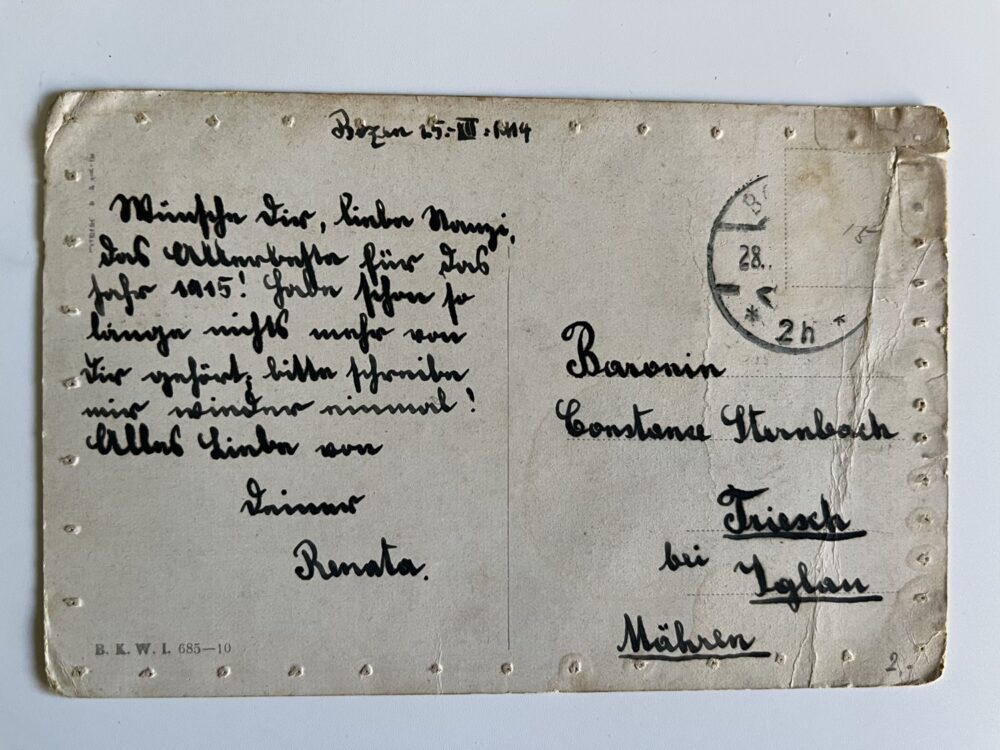 Bozen 25.-XII.-1914
Wünsche Dir, liebe Nanzi,
das Allerbeste für das
Jahr 1915! Habe schon so
lange nichts mehr von
Dir gehört; bitte schreibe
mir wieder einmal!
Alles Liebe von
Deiner
Renata.
B. K. W. I. 685—10
28.
* 2h *
15
Baronin
Constance Sternbach
Triesch
bei Iglau
Mähren
2.-